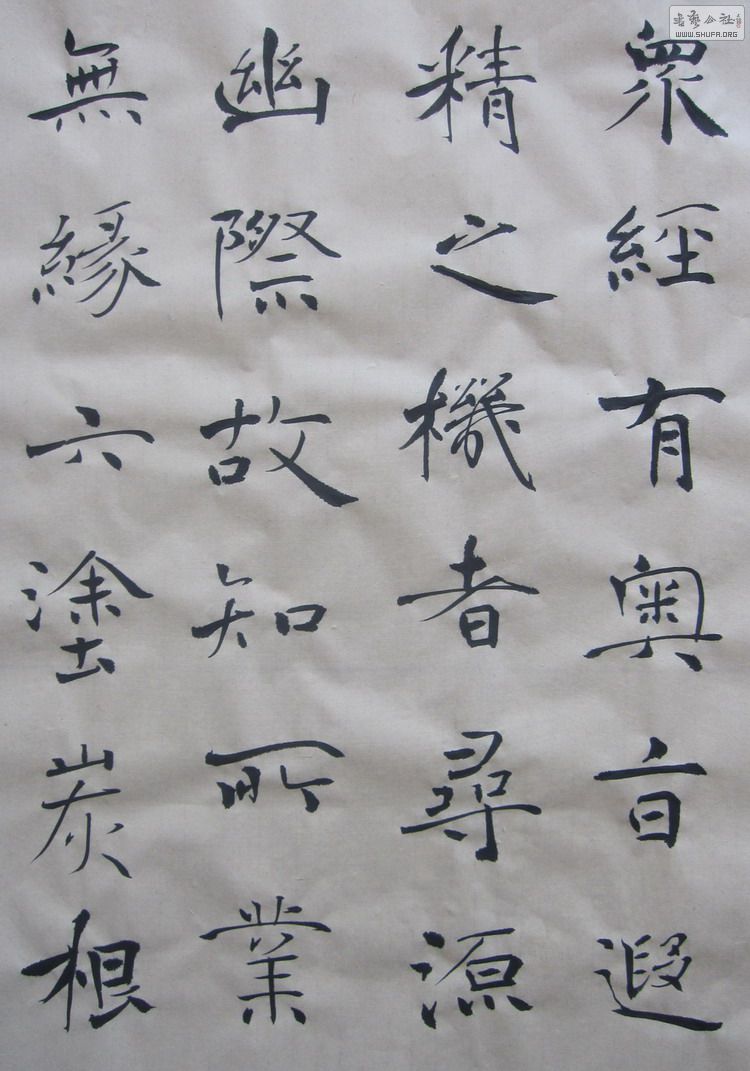 眾經有奧旨遐
精之機者尋源
幽際故知所業
無緣六塗炭根
WWW.SHUFA.ORG